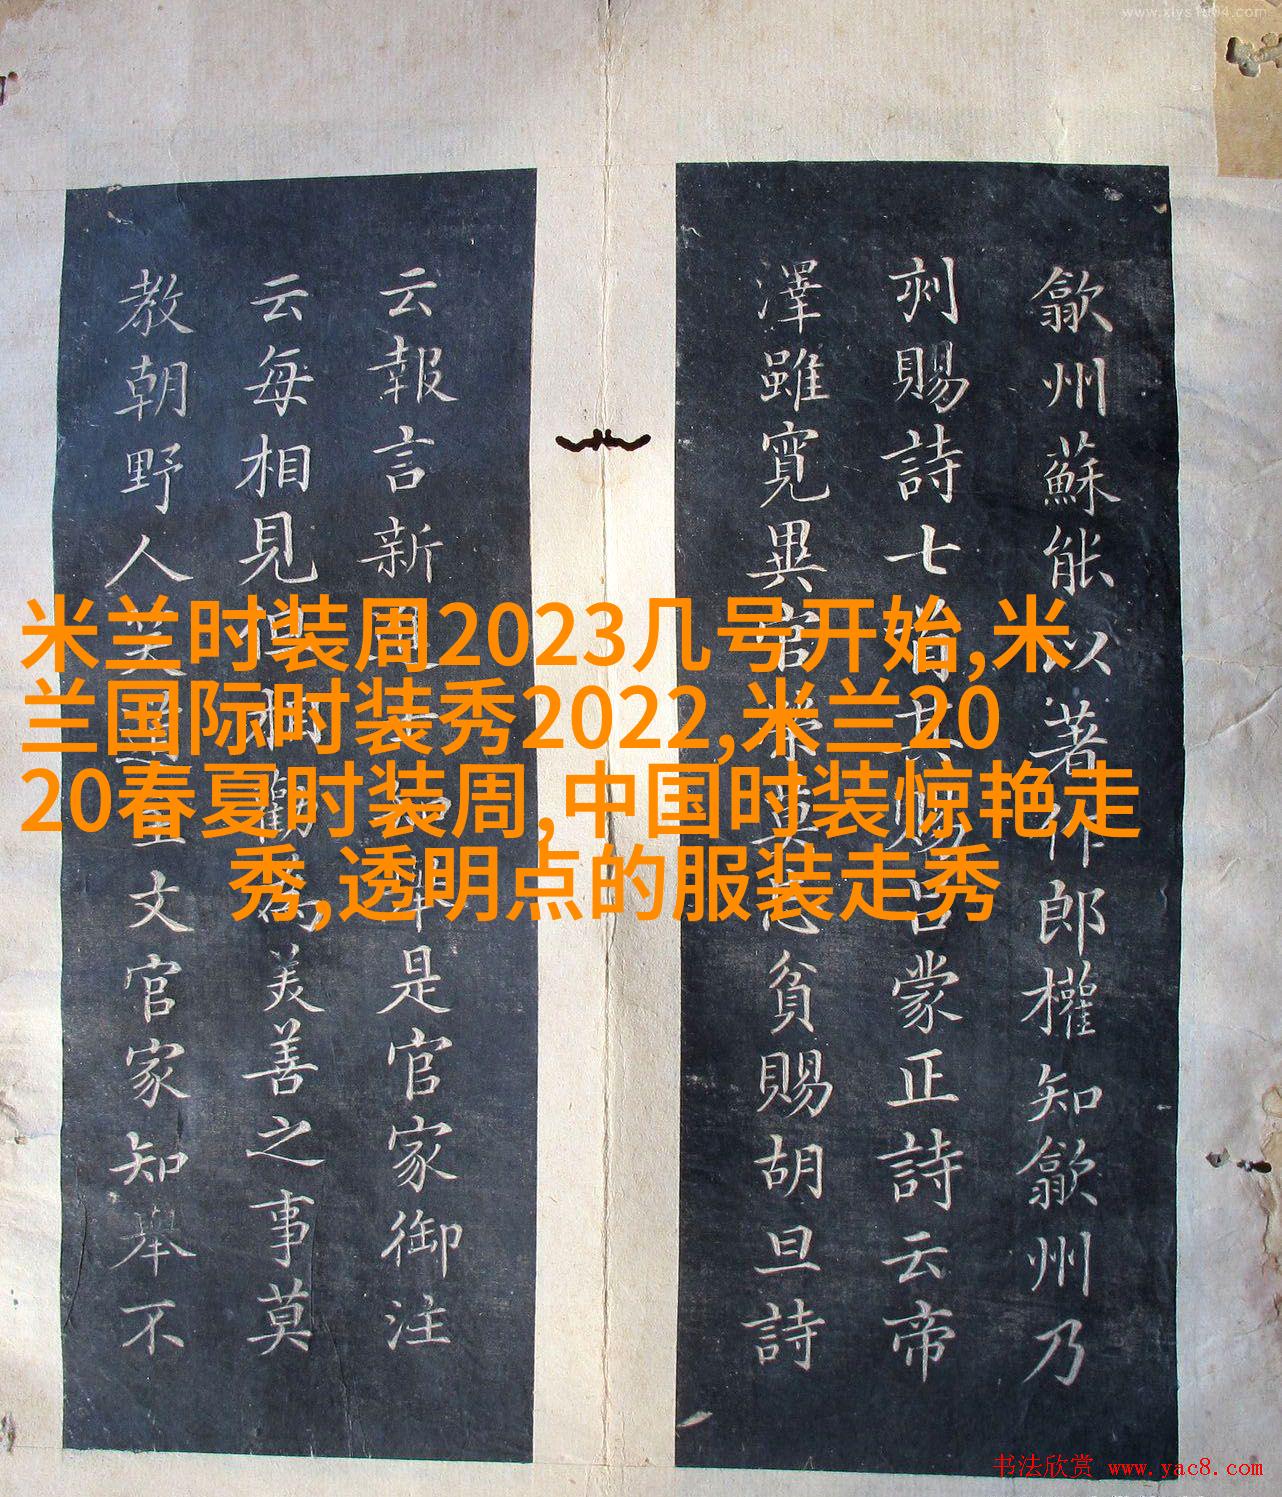 www.xlys1904.com
米兰时装周2023几号开始,米
兰国际时装秀2022,米兰20
20春夏时装周,中国时装惊艳走
秀,透明点的服装走秀
歙州蘇能以著作郎權知歙州乃
刺賜詩七首其賜呂蒙正詩云帝
澤雖寬異官莫忘貧賜胡旦詩
云報言新舉是官家御注
云每相見但相勸為美善之事莫
教朝野人笑文官家知舉不
书法欣赏 www.yac8.com